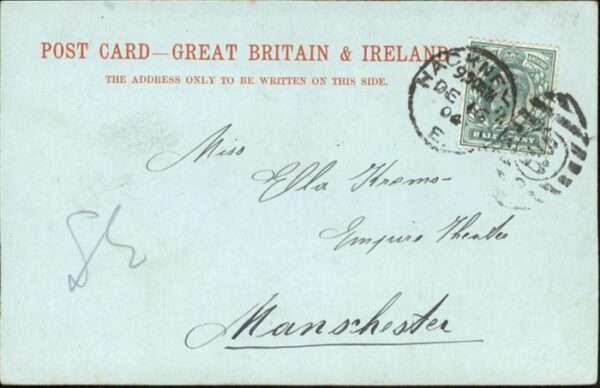 POST CARD—GREAT BRITAIN & IRELAND
THE ADDRESS ONLY TO BE WRITTEN ON THIS SIDE.
HACKNEY
DE
04
E.
Miss
Ella Kromo-
Empire Theater
Manschester